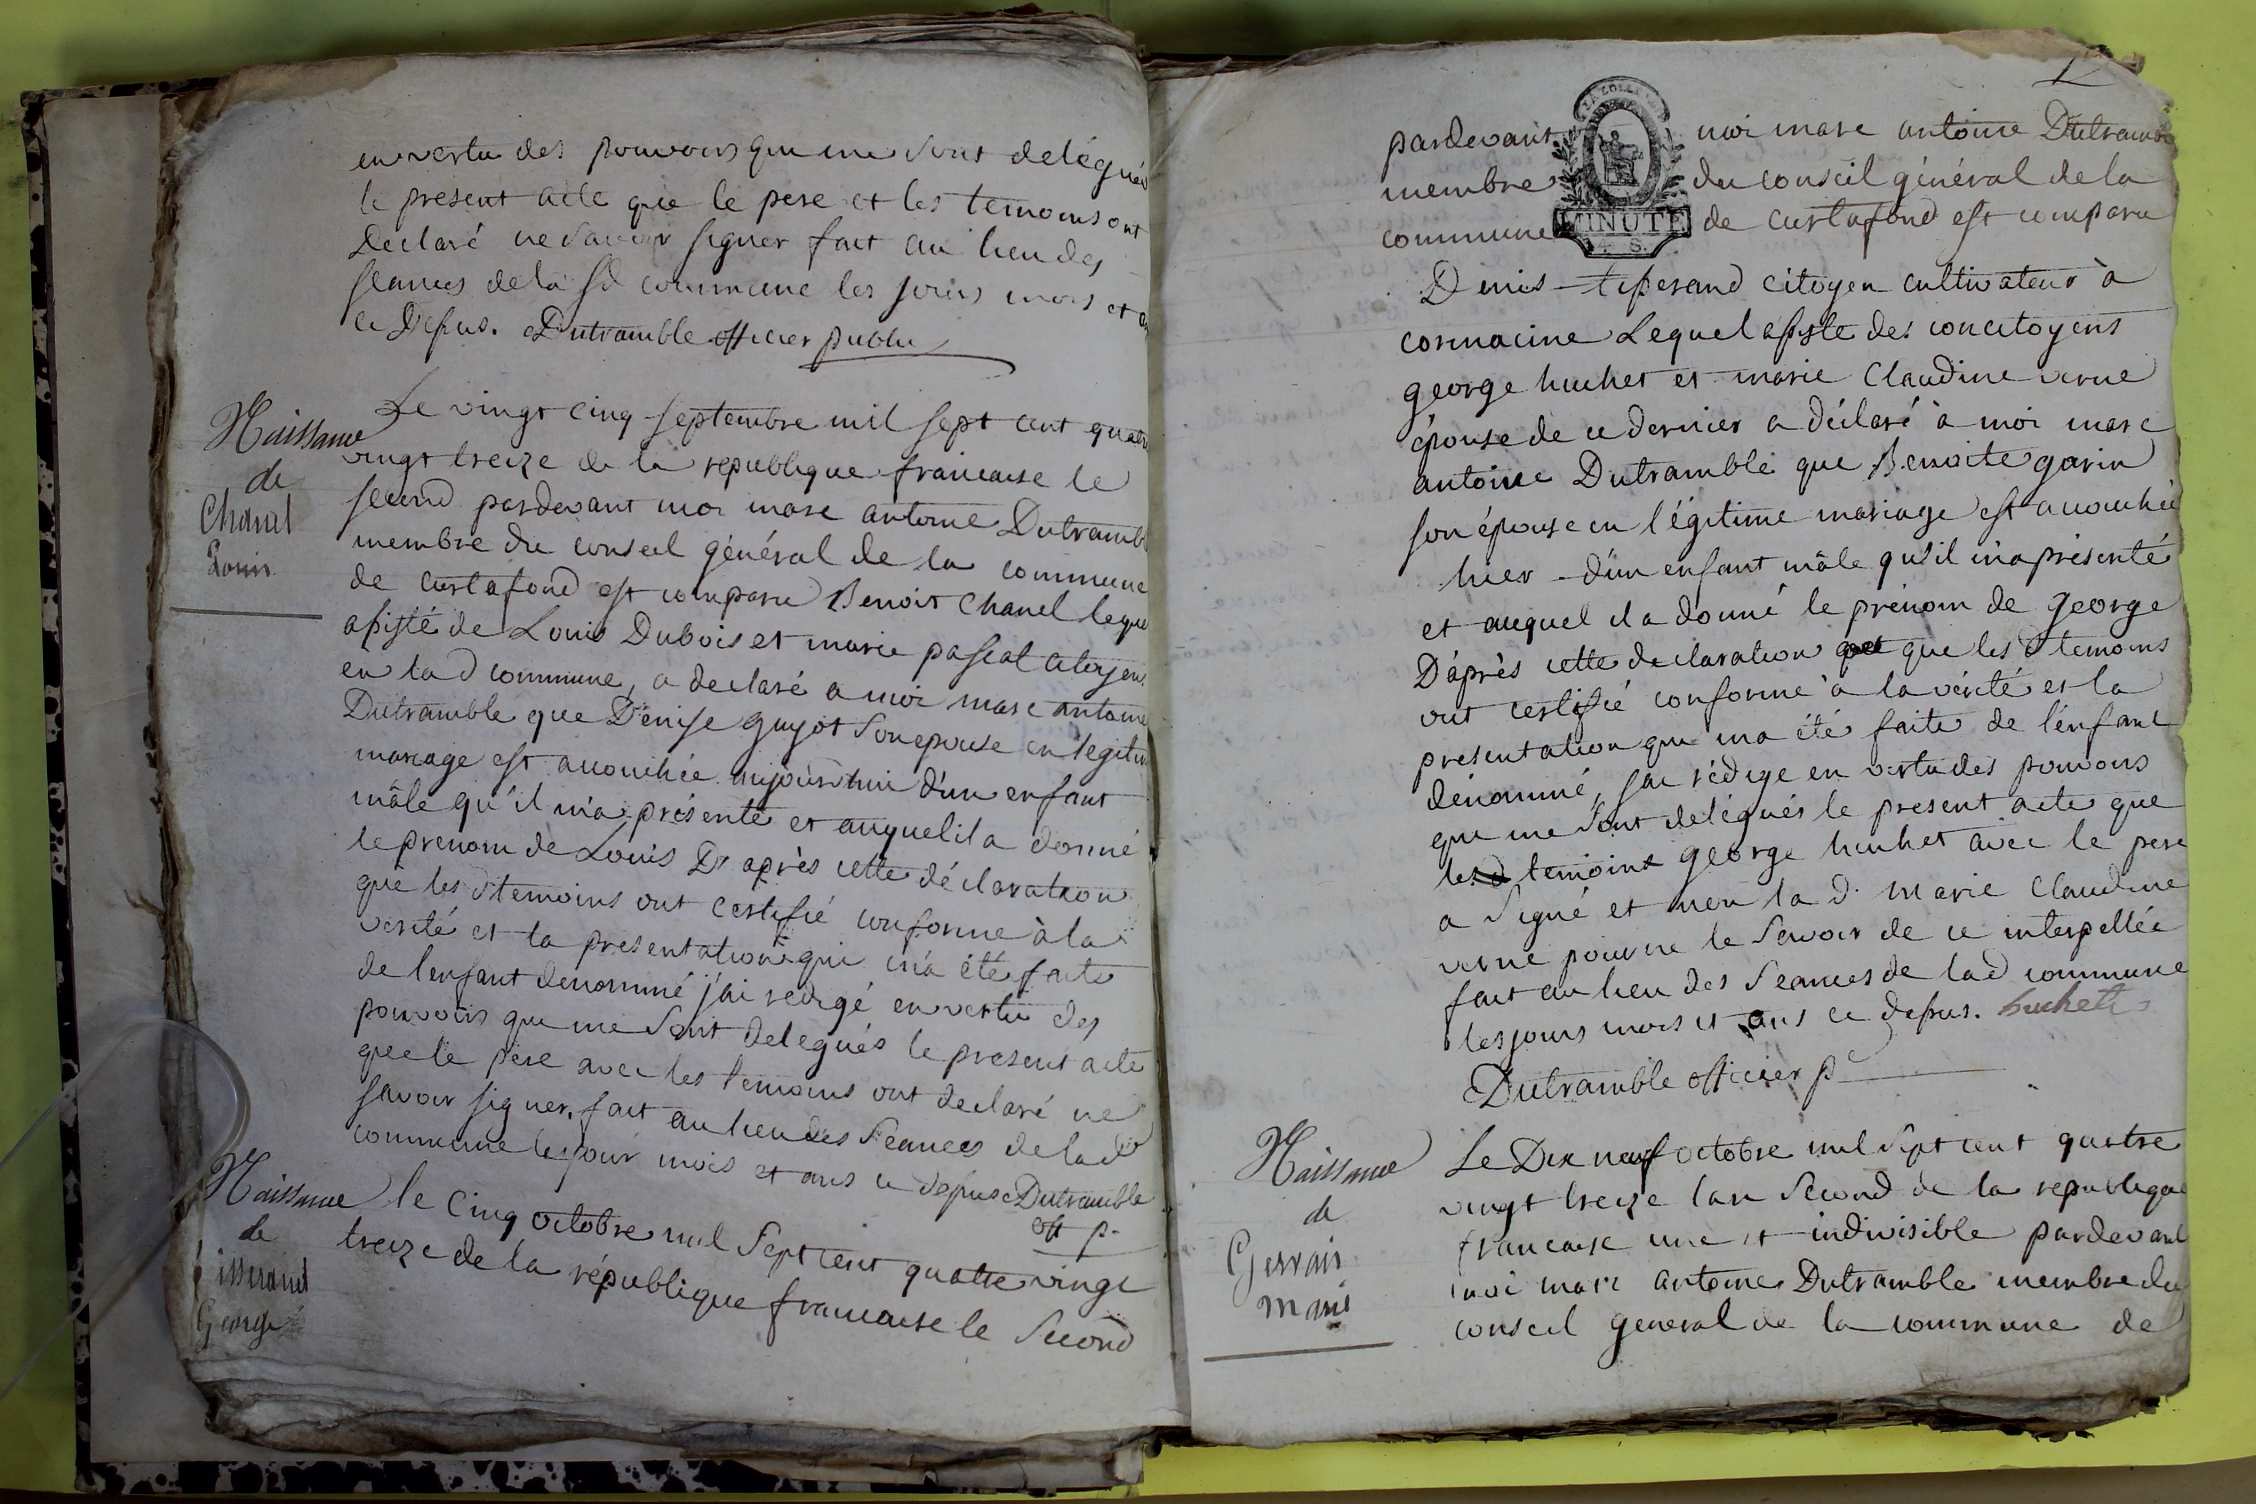 en vertu des pouvoirs qui me sont délégués
le present acte que le pere et les temoins ont
Declaré ne savoir signer fait au lieu des
seances de la sd commune les jours mois et an
ce Depus. Dutramble officier public
Naissance
de
Chanel
Louis
Le vingt cinq septembre mil sept cent quatre
vingt treize de la republique francaise le
second pardevant moi marc antoine Dutramble
membre du conseil général de la commune
de curtafond est comparu Benoit Chanel lequel
assisté de Louis Dubois et marie pascal citoyens
en lad commune, a declaré a moi marc antoine
Dutramble que Denise guyot son epouse en legitime
mariage est accouchée aujourd'hui d'un enfant
mâle qu'il m'a présenté et auquel il a donné
le prenom de Louis D'après cette déclaration
que les d temoins ont certifié conforme à la
verité et la presentation qui m'a été faite
de l'enfant denommé j'ai redigé en vertu des
pouvoirs que me sont delegués le present acte
que le père avec les temoins ont declaré ne
savoir signer, fait au lieu des Seances de lad
commune les jour mois et ans ce depus Dutramble
off p.
Naissance
de
George
le cinq octobre mil Sept cent quatre vingt
treize de la république francaise le Second
pardevant moi marc antoine Dutramble
membre du conseil général de la
commune de curtafond est comparu
MINUTE
4 S.
Denis tisserand citoyen cultivateur à
cormacine Lequel assiste des concitoyens
george huchet et marie Claudine verne
épouse de ce dernier a déclaré à moi marc
antoine Dutramble que Benoite garin
son épouse en légitime mariage est accouchée
hier d'un enfant mâle qu'il m'a présenté
et auquel il a donné le prénom de george
D'après cette declaration que les d temoins
ont certifié conforme à la vérité et la
presentation qui m'a été faite de l'enfant
dénommé, j'ai rédigé en vertu des pouvoirs
qui me sont delégués le present acte que
les temoins george huchet avec le pere
a signé et non la d. marie Claudine
verne pour ne le savoir de ce interpellée
fait au lieu des seances de lad commune
les jours mois et ans ce depus. huchet
Dutramble officier p
Naissance
de
Gervais
Marie
Le Dix neuf octobre mil sept cent quatre
vingt treize l'an second de la republique
francaise une et indivisible pardevant
moi marc antoine Dutramble membre du
conseil general de la commune de